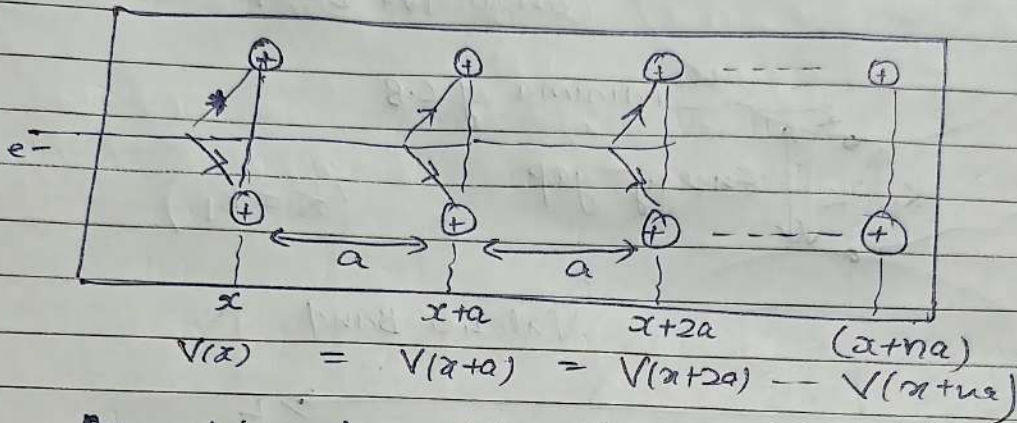 + + + - - - - +
e-
+ + + - - - - +
a a
x x+a x+2a (x+na)
V(x) = V(x+a) = V(x+2a) -- V(x+na)